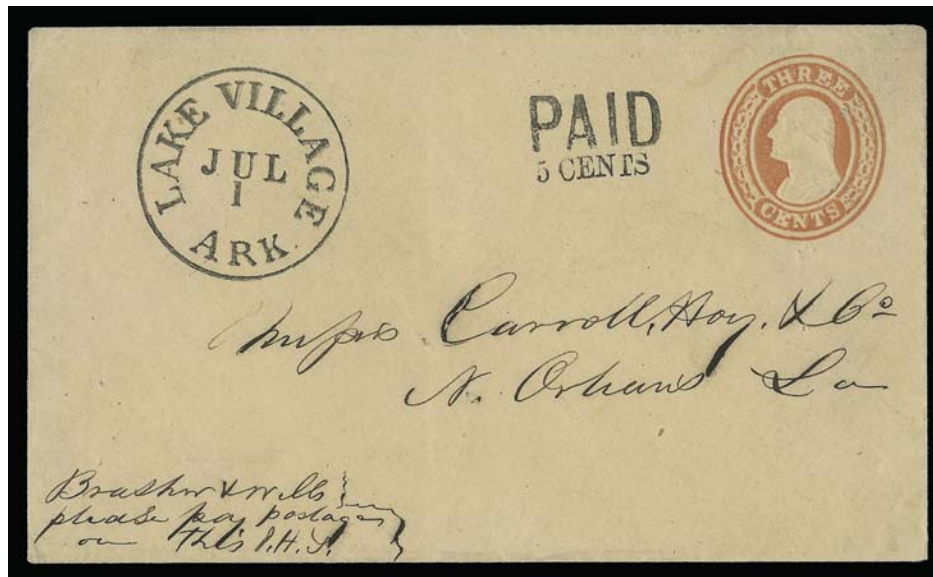 LAKE VILLAGE
JUL
1
ARK.
PAID
5 CENTS
THREE
CENTS
Messrs Carroll, Hoy, & Co
N. Orleans La
Brashear & Wells
please pay postage
on this